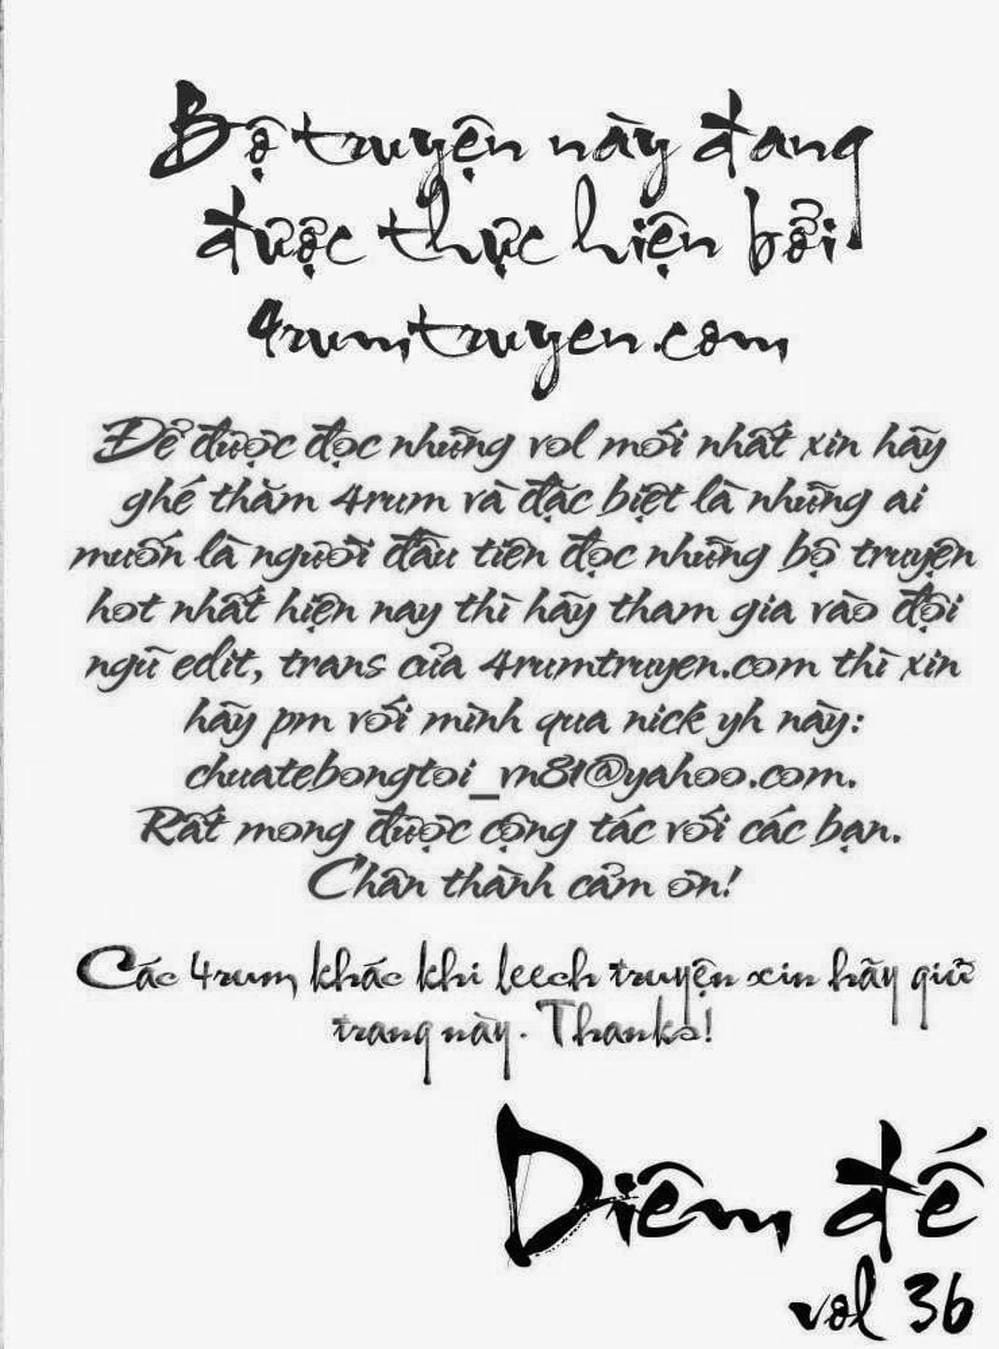 Bộ truyện này đang
được thực hiện bởi
4rumtruyen.com
Để được đọc những vol mới nhất xin hãy
ghé thăm 4rum và đặc biệt là những ai
muốn là người đầu tiên đọc những bộ truyện
hot nhất hiện nay thì hãy tham gia vào đội
ngũ edit, trans của 4rumtruyen.com thì xin
hãy pm với mình qua nick yh này:
chuatebongtoi_vn81@yahoo.com.
Rất mong được cộng tác với các bạn.
Chân thành cảm ơn!
Các 4rum khác khi leech truyện xin hãy giữ
trang này. Thanks!
Diêm đế
vol 36